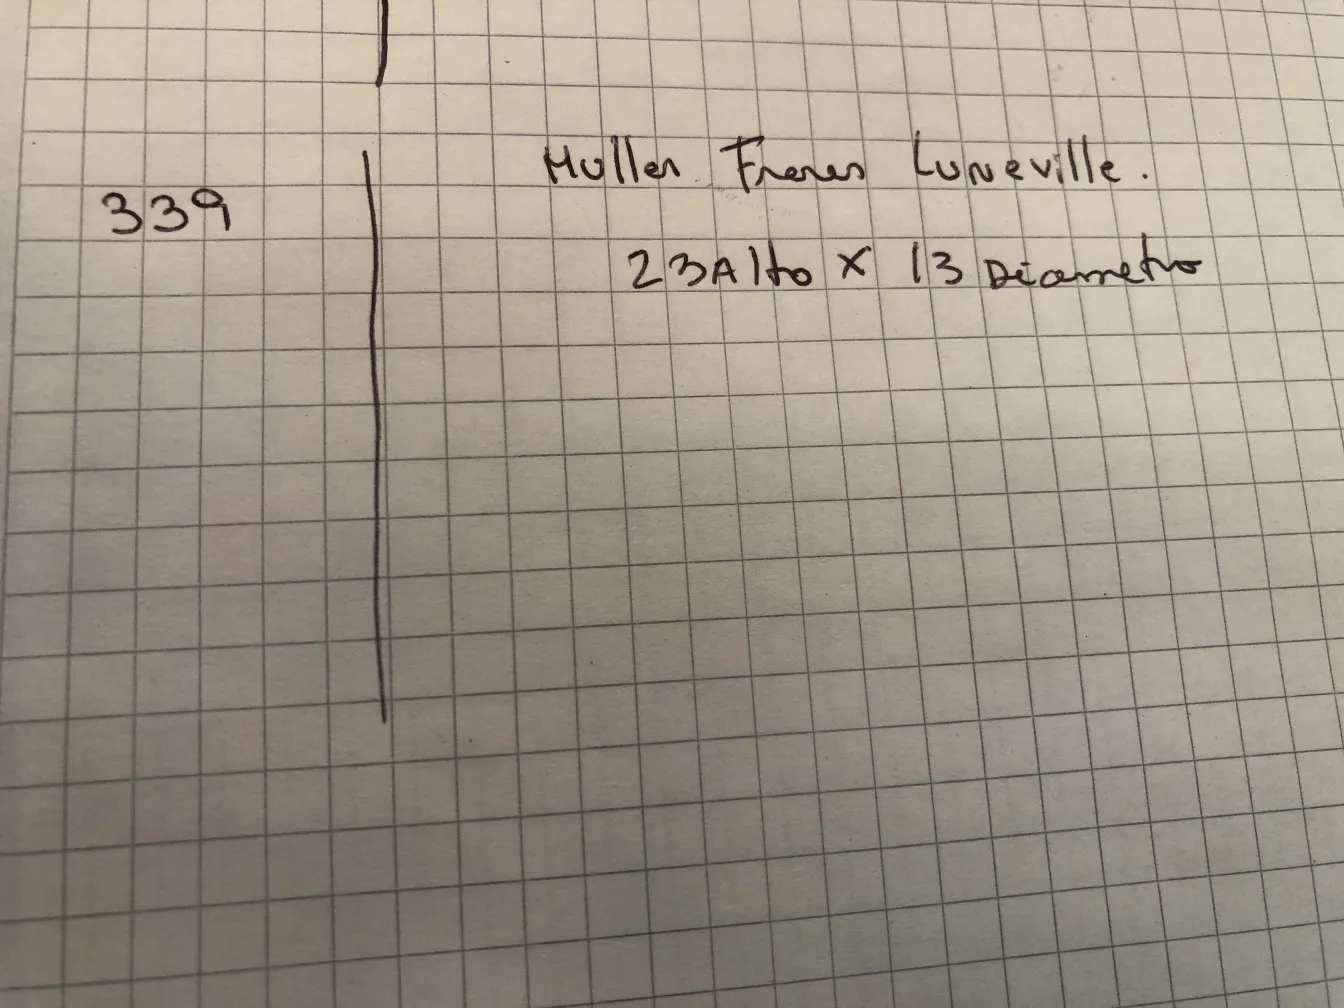 Muller Freres Luneville.
339
23 Alto x 13 Diametro